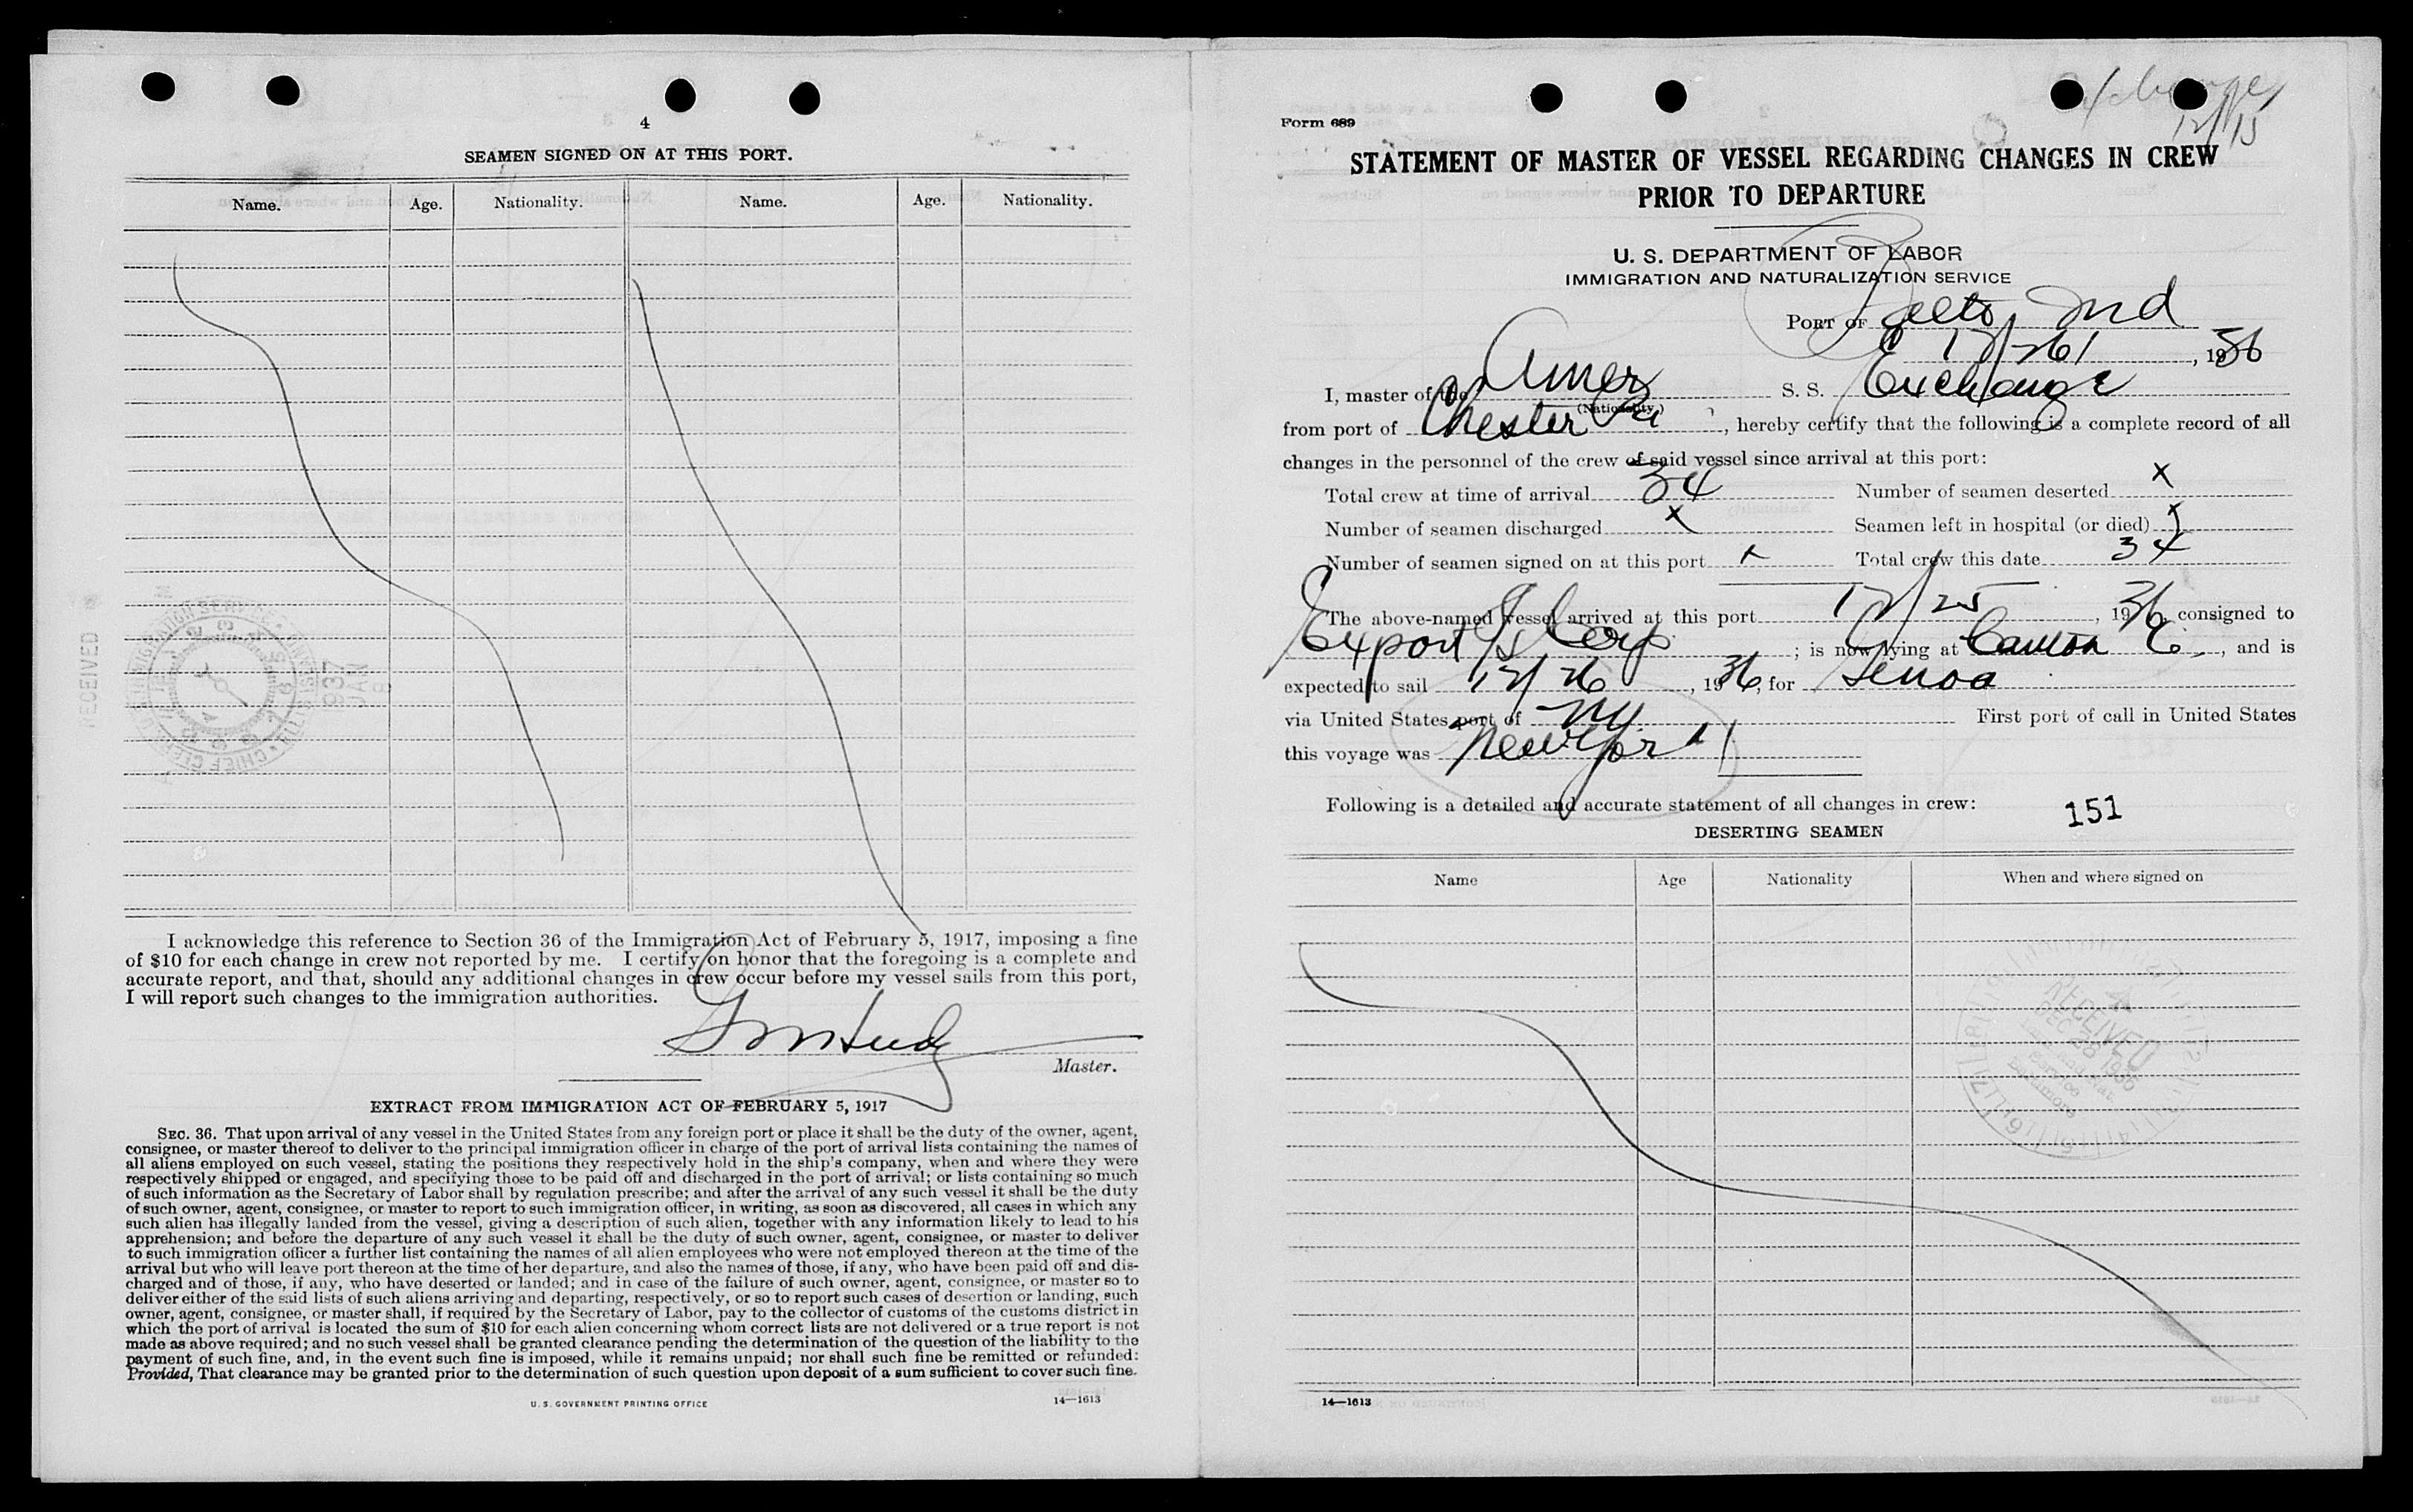 4
SEAMEN SIGNED ON AT THIS PORT.
Name. Age. Nationality. Name. Age. Nationality.
RECEIVED
I acknowledge this reference to Section 36 of the Immigration Act of February 5, 1917, imposing a fine
of $10 for each change in crew not reported by me. I certify on honor that the foregoing is a complete and
accurate report, and that, should any additional changes in crew occur before my vessel sails from this port,
I will report such changes to the immigration authorities.
Master.
EXTRACT FROM IMMIGRATION ACT OF FEBRUARY 5, 1917
SEC. 36. That upon arrival of any vessel in the United States from any foreign port or place it shall be the duty of the owner, agent,
consignee, or master thereof to deliver to the principal immigration officer in charge of the port of arrival lists containing the names of
all aliens employed on such vessel, stating the positions they respectively hold in the ship's company, when and where they were
respectively shipped or engaged, and specifying those to be paid off and discharged in the port of arrival; or lists containing so much
of such information as the Secretary of Labor shall by regulation prescribe; and after the arrival of any such vessel it shall be the duty
of such owner, agent, consignee, or master to report to such immigration officer, in writing, as soon as discovered, all cases in which any
such alien has illegally landed from the vessel, giving a description of such alien, together with any information likely to lead to his
apprehension; and before the departure of any such vessel it shall be the duty of such owner, agent, consignee, or master to deliver
to such immigration officer a further list containing the names of all alien employees who were not employed thereon at the time of the
arrival but who will leave port thereon at the time of her departure, and also the names of those, if any, who have been paid off and dis-
charged and of those, if any, who have deserted or landed; and in case of the failure of such owner, agent, consignee, or master so to
deliver either of the said lists of such aliens arriving and departing, respectively, or so to report such cases of desertion or landing, such
owner, agent, consignee, or master shall, if required by the Secretary of Labor, pay to the collector of customs of the customs district in
which the port of arrival is located the sum of $10 for each alien concerning whom correct lists are not delivered or a true report is not
made as above required; and no such vessel shall be granted clearance pending the determination of the question of the liability to the
payment of such fine, and, in the event such fine is imposed, while it remains unpaid; nor shall such fine be remitted or refunded:
Provided, That clearance may be granted prior to the determination of such question upon deposit of a sum sufficient to cover such fine.
U. S. GOVERNMENT PRINTING OFFICE 14—1613
Exchange
12/15
Form 689
STATEMENT OF MASTER OF VESSEL REGARDING CHANGES IN CREW
PRIOR TO DEPARTURE
U. S. DEPARTMENT OF LABOR
IMMIGRATION AND NATURALIZATION SERVICE
PORT OF Balto Md
12/26/, 1936
I, master of the Amer S. S. Exchange
(Nationality)
from port of Chester Pa, hereby certify that the following is a complete record of all
changes in the personnel of the crew of said vessel since arrival at this port:
Total crew at time of arrival 34 Number of seamen deserted x
Number of seamen discharged x Seamen left in hospital (or died) x
Number of seamen signed on at this port x Total crew this date 34
The above-named vessel arrived at this port 12/25, 1936, consigned to
Export SS Corp; is now lying at Canton Co., and is
expected to sail 12/26, 1936, for Genoa
via United States port of NY First port of call in United States
this voyage was New York
Following is a detailed and accurate statement of all changes in crew:
151
DESERTING SEAMEN
Name Age Nationality When and where signed on
RECEIVED
DEC 28 1936
Baltimore
14—1613